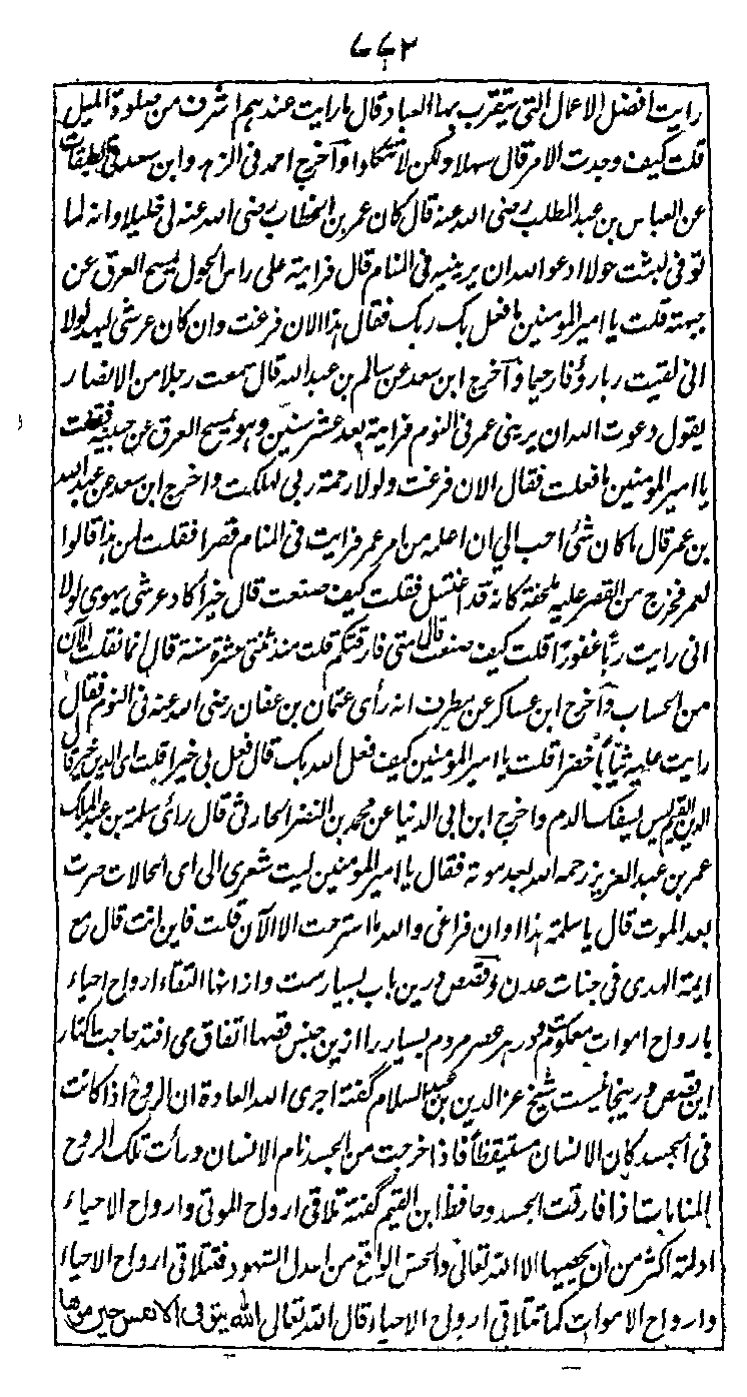 ۷۷۲
رایت افضل الاعمال التی یتقرب بها العباد قال ما رایت عندهم اشرف من صلوة اللیل
قلت کیف وجدت الامر قال سهلا ولکن لا تتکلوا وآخرج احمد فی الزهد وابن سعد فی الطبقات
عن العباس بن عبد المطلب رضی الله عنه قال کان عمر بن الخطاب رضی الله عنه لی خلیلا وانه لما
توفی لبثت حولا ادعو الله ان یرینیه فی المنام قال فرایته علی راس الحول یمسح العرق عن
جبهته قلت یا امیر المؤمنین ما فعل بک ربک فقال هذا الان فرغت وان کان عرشی لیهد لولا
انی لقیت ربا رؤفا رحیما وآخرج ابن سعد عن سالم بن عبد الله قال سمعت رجلا من الانصار
یقول دعوت الله ان یرینی عمر فی النوم فرایته بعد عشر سنین وهو یمسح العرق عن جبینه فقلت
یا امیر المؤمنین ما فعلت فقال الان فرغت ولولا رحمة ربی لهلکت واخرج ابن سعد عن عبد الله
بن عمر قال ما کان شئ احب الی ان اعلمه من امر عمر فرایت فی المنام قصرا فقلت لمن هذا قالوا
لعمر فخرج من القصر علیه ملحفة کانه قد اغتسل فقلت کیف صنعت قال خیرا کاد عرشی یهوی لولا
انی رایت ربا غفورا قلت کیف صنعت قال متی فارقتکم قلت منذ ثنتی عشرة سنة قال انما نفلت الآن
من الحساب وآخرج ابن عساکر عن مطرف انه رأی عثمان بن عفان رضی الله عنه فی النوم فقال
رایت علیه ثیابا خضرا قلت یا امیر المؤمنین کیف فعل الله بک قال فعل بی خیرا قلت ای الدین خیر قال
الدین القیم لیس لیسفک الدم واخرج ابن ابی الدنیا عن محمد بن النضر الحارثی قال رأی سلمة بن عبد الملک
عمر بن عبد العزیز رحمه الله بعد موته فقال یا امیر المؤمنین لیت شعری الی ای الحالات صرت
بعد الموت قال یا سلمة هذا اوان فراغی والله ما استرحت الا الآن قلت فاین انت قال مع
ایمة الهدی فی جنات عدن وقصص درین باب بسیارست واز انها التقاء ارواح احیاء
بارواح اموات معلوم و در هر عصر مردم بسیار را ازین جنس قصها اتفاق می افتد حاجت اکثار
این قصص در ینجا نیست شیخ عز الدین بن عبد السلام گفته اجری الله العادة ان الروح اذا کانت
فی الجسد کان الانسان مستیقظا فاذا خرجت من الجسد نام الانسان ورأت تلک الروح
المنامات اذا فارقت الجسد وحافظ ابن القیم گفته تلاقی ارواح الموتی وارواح الاحیاء
ادلته اکثر من ان یحصیها الا الله تعالی والحس الواقع من اعدل الشهود فتتلاقی ارواح الاحیاء
وارواح الاموات کما تتلاقی ارواح الاحیاء قال الله تعالی الله یتوفی الانفس حین موتها